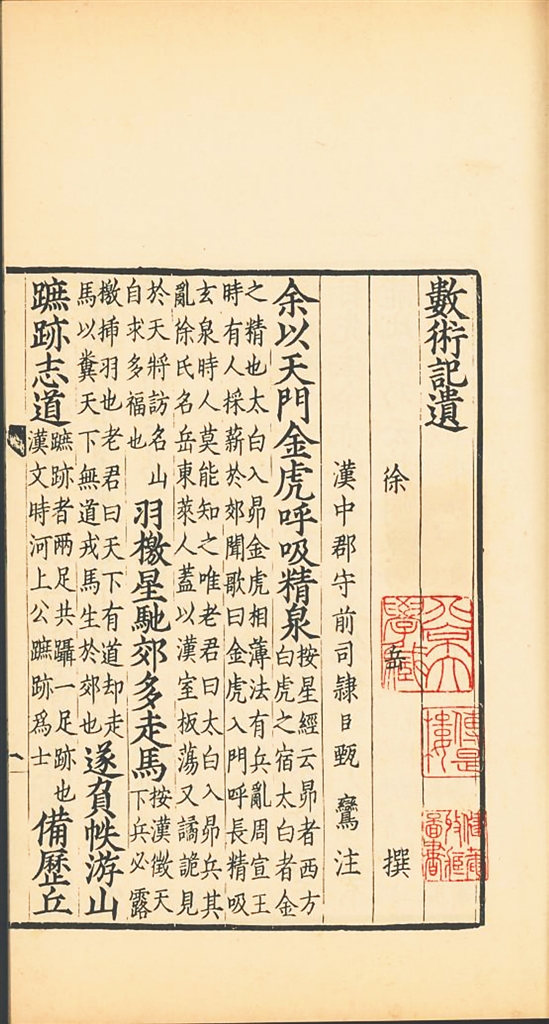 數術記遺
徐岳撰
漢中郡守前司隸臣甄鸞注
余以天門金虎呼吸精泉
按星經云昴者西方
白虎之宿太白者金
之精也太白入昴金虎相薄法有兵亂周宣王
時有人採薪於郊聞歌曰金虎入門呼長精吸
玄泉時人莫能知之唯老君曰太白入昴兵其
亂徐氏名岳東萊人蓋以漢室板蕩又譎詭見
於天將訪名山
自求多福也
羽檄星馳郊多走馬
按漢徵天
下兵必露
檄挿羽也老君曰天下有道却走
馬以糞天下無道戎馬生於郊也
遂負帙游山
蹠跡志道
蹠跡者兩足共躡一足跡也
漢文時河上公蹠跡爲士
備歷丘
傳是樓